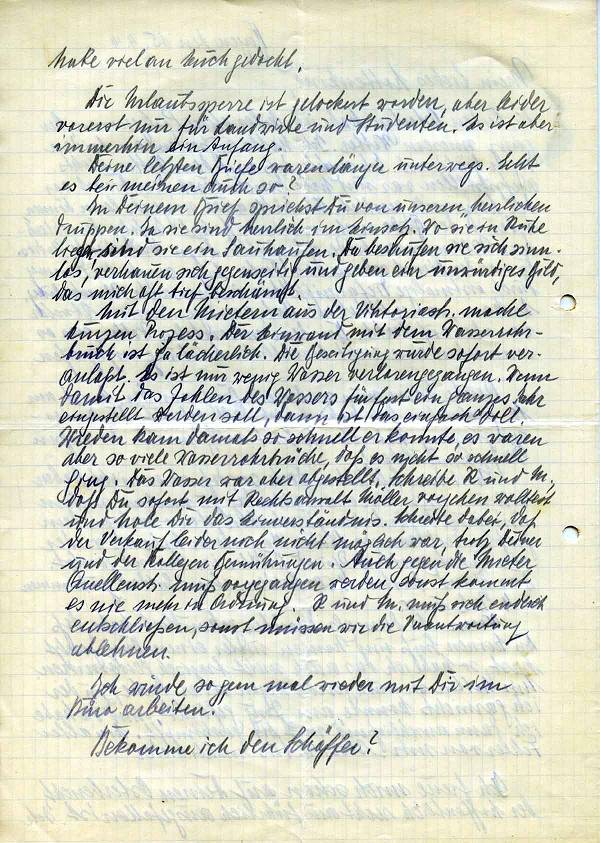 habe viel an Euch gedacht.
Die Urlaubssperre ist gelockert worden, aber leider
vorerst nur für Landwirte und Studenten. Es ist aber
immerhin ein Anfang.
Deine letzten Briefe waren länger unterwegs. Geht
es bei meinen auch so?
In Deinem Brief sprichst Du von unseren herrlichen
Truppen. Ja sie sind herrlich im Einsatz. Wo sie in Ruhe
liegen sind sie ein Sauhaufen. Da besaufen sie sich sinn-
los, verhauen sich gegenseitig und geben ein unwürdiges Bild,
das mich oft tief beschämt.
Mit den Mietern aus der Viktoriastr. mache
kurzen Prozess. Der Einwand mit dem Wasserrohr-
bruch ist ja lächerlich. Die Beseitigung wurde sofort ver-
anlaßt. Es ist nur wenig Wasser verlorengegangen. Wenn
damit das Zahlen des Wassers für fast ein ganzes Jahr
eingestellt werden soll, dann ist das einfach toll.
Wieden kam damals so schnell er konnte, es waren
aber so viele Wasserrohrbrüche, daß es nicht so schnell
ging. Das Wasser war aber abgestellt. Schreibe R und M,
daß Du sofort mit Rechtsanwalt Möller vorgehen wolltest
und hole Dir das Einverständnis. Schreibe dabei, daß
der Verkauf leider noch nicht möglich war, trotz Deiner
und der Kollegen Bemühungen. Auch gegen die Mieter
Quellenstr. muß vorgegangen werden, sonst kommt
es nie mehr in Ordnung. R und M. muß sich endlich
entschließen, sonst müssen wir die Verantwortung
ablehnen.
Ich würde so gern mal wieder mit Dir im
Büro arbeiten.
Bekomme ich den Schäffer?